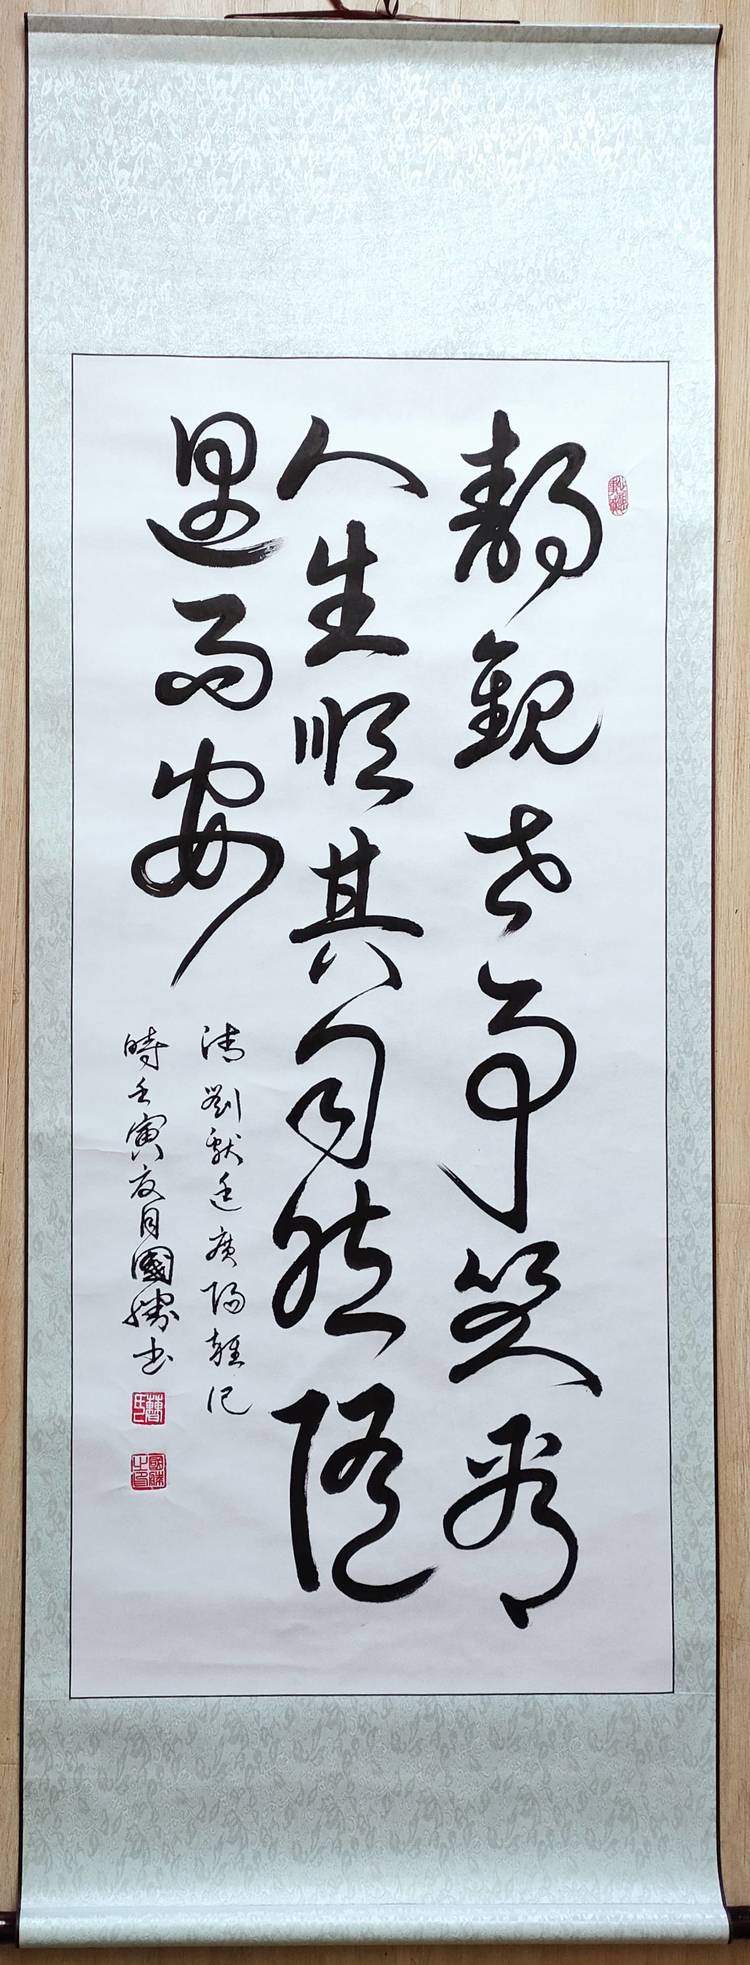 靜觀世事笑看
人生順其自然隨
遇而安
清劉獻廷廣陽雜記
時壬寅夜月國勝書